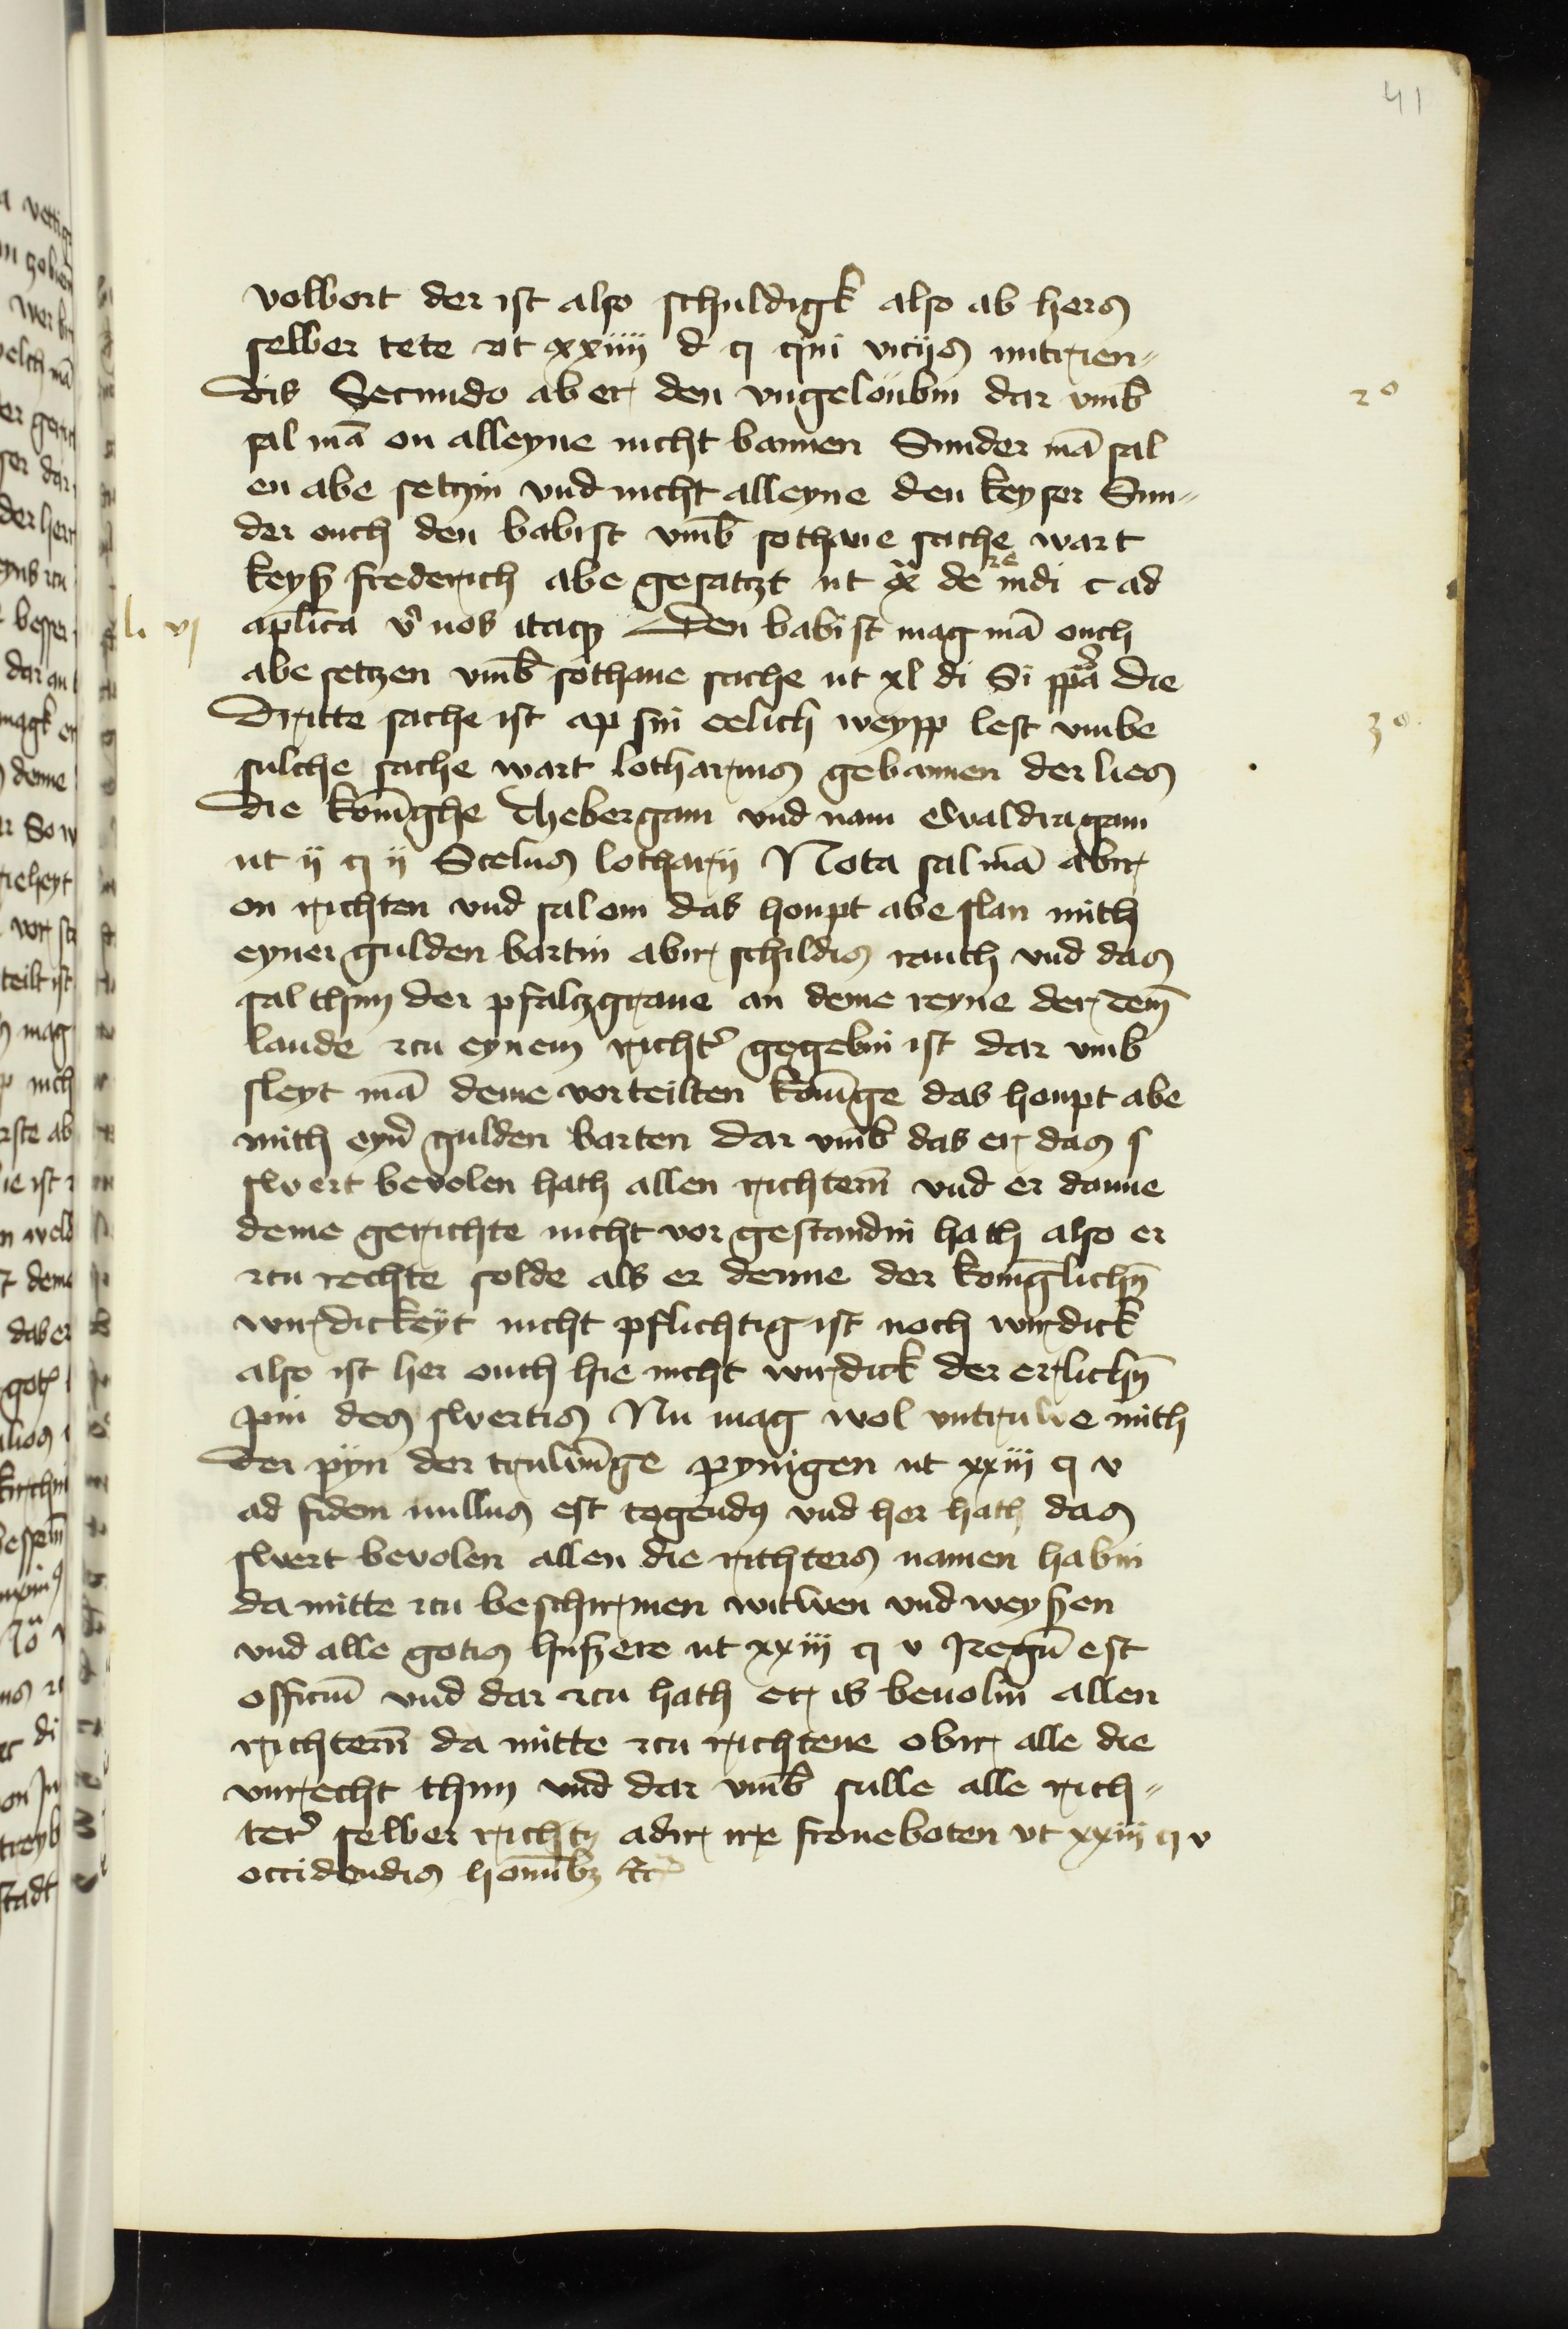 41
volbort der ist also schuldigk also ab hers
selber tete ut xxiiii d q qui vicijs nutrien-
dis Secundo ab er den ungeloubin dar umb̄
sal mā on alleyne nicht bannen Sunder mā sal
en abe setczin und nicht alleyne den keyser Sun-
der ouch den babist umb̄ sothane sache wart
keyß frederich abe gesatczt ut de re iudi c ad
aplica v̓ nos itaqꝫ Den babist mag mā ouch
abe setzen umb̄ sothane sache ut xl di Si ppā die
Dritte sache ist ap sin eelich weypp lest umbe
sulche sache wart lotharius gebannen der lies
die konīghe thebergam und nam Ewaldragam
ut ij q ij Scelus lotharij Nota sal mā abir
on richten und sal om das houpt abe slan mith
eyner gulden bartin abir schildis rauch und das
sal thun der pfalczgraue an deme reyne der dem̄
lande zcu eynem richt̓ gegebin ist dar umb
sleyt mā deme vorteilten konīge das houpt abe
mith eyn̓ gulden barten dar umb̄ das er das s
swert bevolen hath allen richtern̄ und er danne
deme gerichte nicht vor gestandin hath also er
zcu rechte solde als er denne der konīglichn̄
wirdickeyt nicht pflichtig ist noch wirdick
also ist her ouch hie nicht wirdick der erlichn̄
pin des swertis Nu mag wol untruwe mith
der pyn der truwūge pynigen ut xxiii q v
ad fidem nullus est cogendꝯ und her hath das
swert bevolen allen die richters namen habin
da mitte zcu beschirmen witwen und weyßen
und alle gotis hußere ut xxiij q v Regū est
officiū und dar zcu hath er is beuolin allen
richtern̄ da mitte zcu richtene obir alle die
unrecht thun und dar umb̄ sulle alle rich-
ter̓ selber richtꝫ adir ire froneboten ut xxiij q v
occidendis homībꝫ ꝛc
li vj
2º
3º